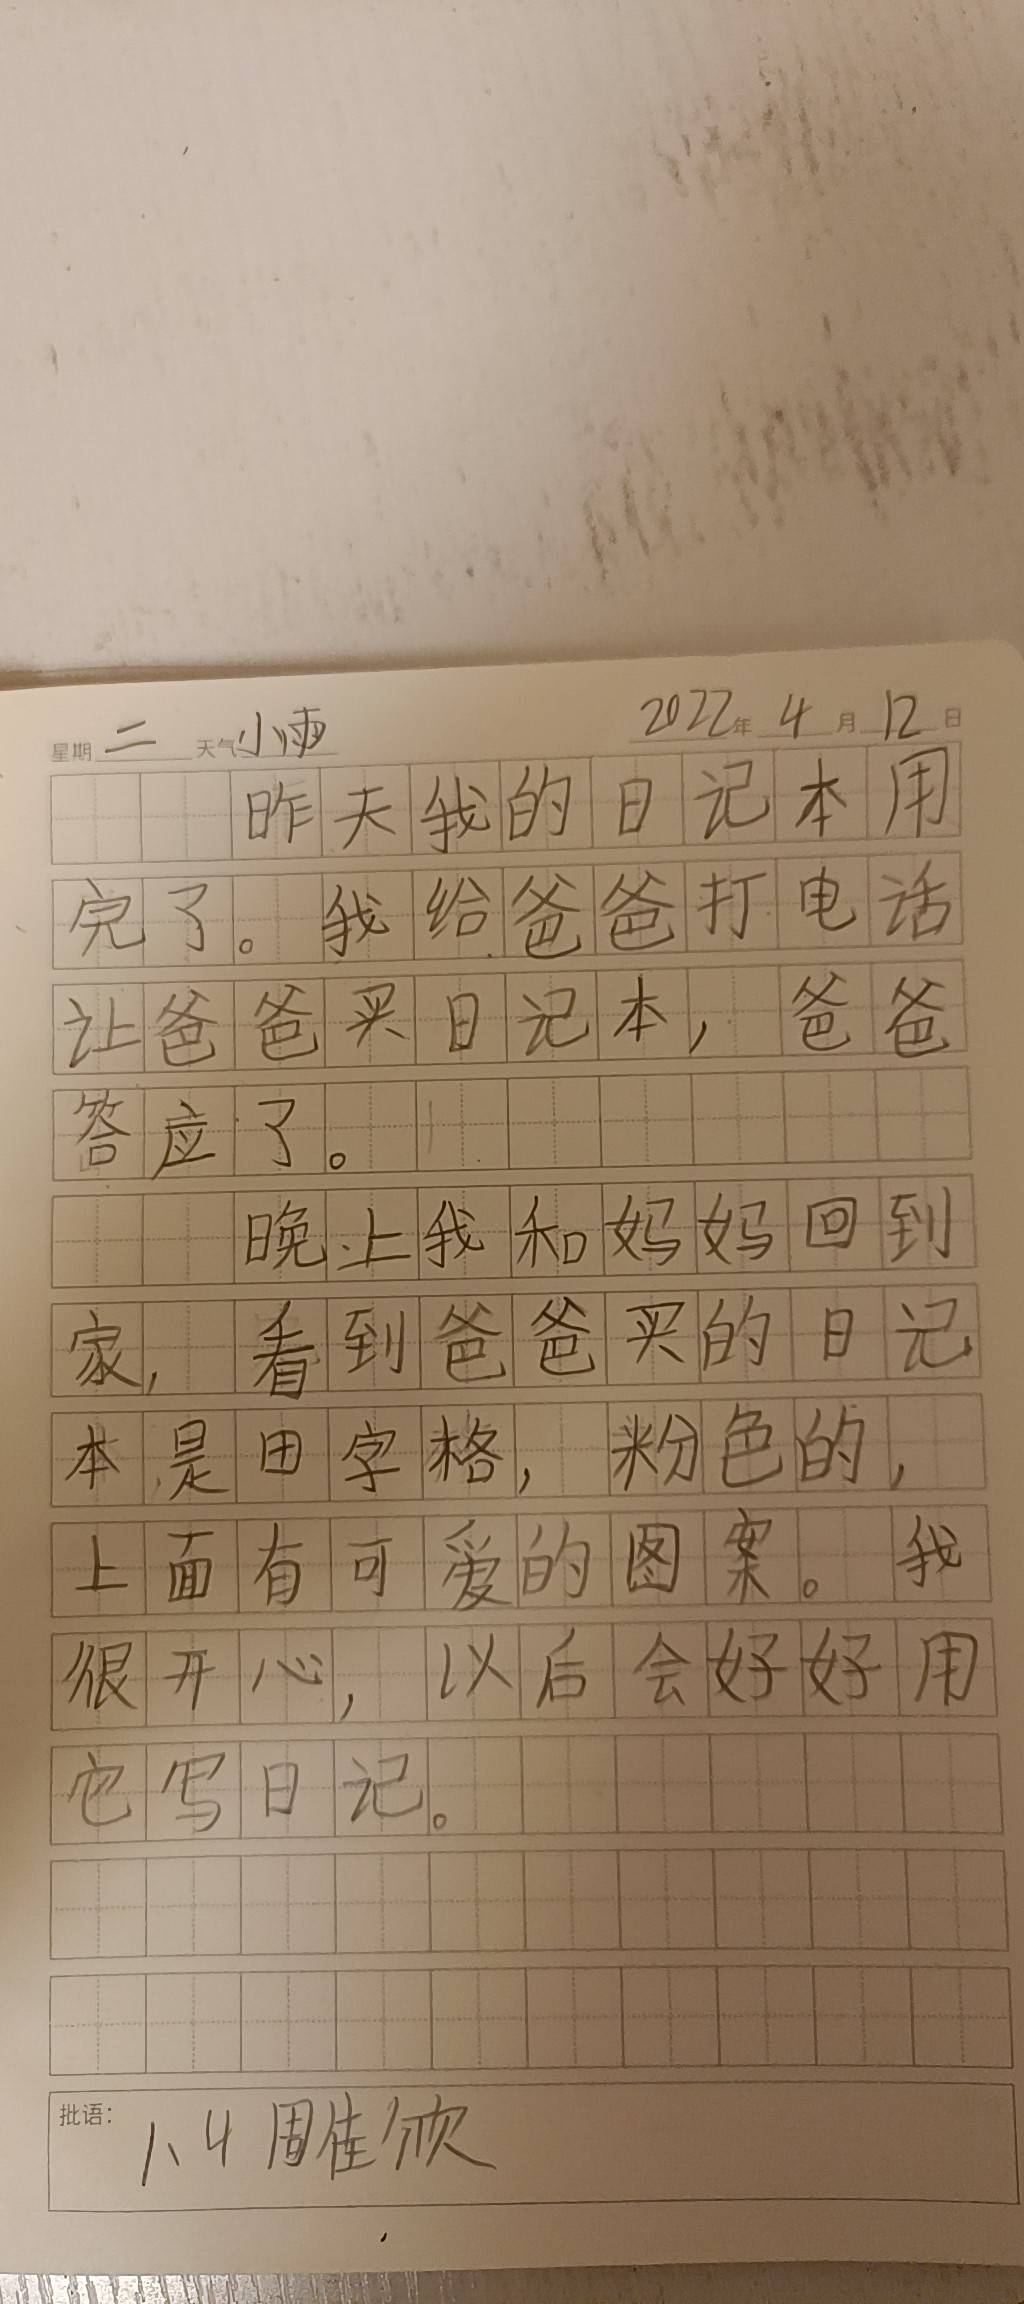 星期 二 天气 小雨 2022年 4月 12日
昨天我的日记本用
完了。我给爸爸打电话
让爸爸买日记本，爸爸
答应了。
晚上我和妈妈回到
家，看到爸爸买的日记
本是田字格，粉色的，
上面有可爱的图案。我
很开心，以后会好好用
它写日记。
批语： 1、4 周佳欣